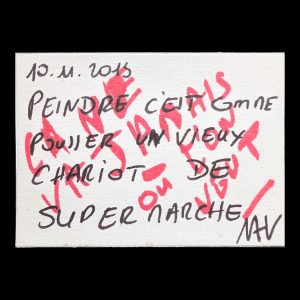 10.11.2015
PEINDRE C'EST COMME
POUSSER UN VIEUX
CHARIOT DE
SUPERMARCHE
ÇA NE
VA JAMAIS
OÙ L'ON
VEUT